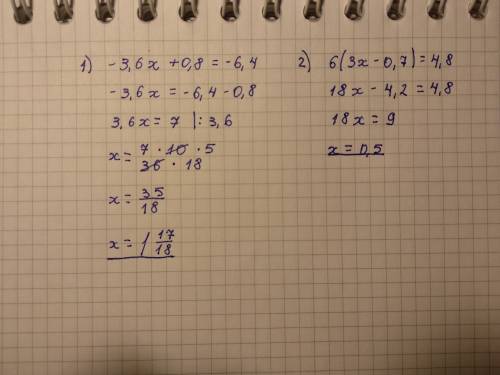 1) -3,6x + 0,8 = -6,4
-3,6x = -6,4 - 0,8
3,6x = 7 |: 3,6
x = 7 · 10 · 5 / 36 · 18
x = 35/18
x = 1 17/18
2) 6(3x - 0,7) = 4,8
18x - 4,2 = 4,8
18x = 9
x = 0,5